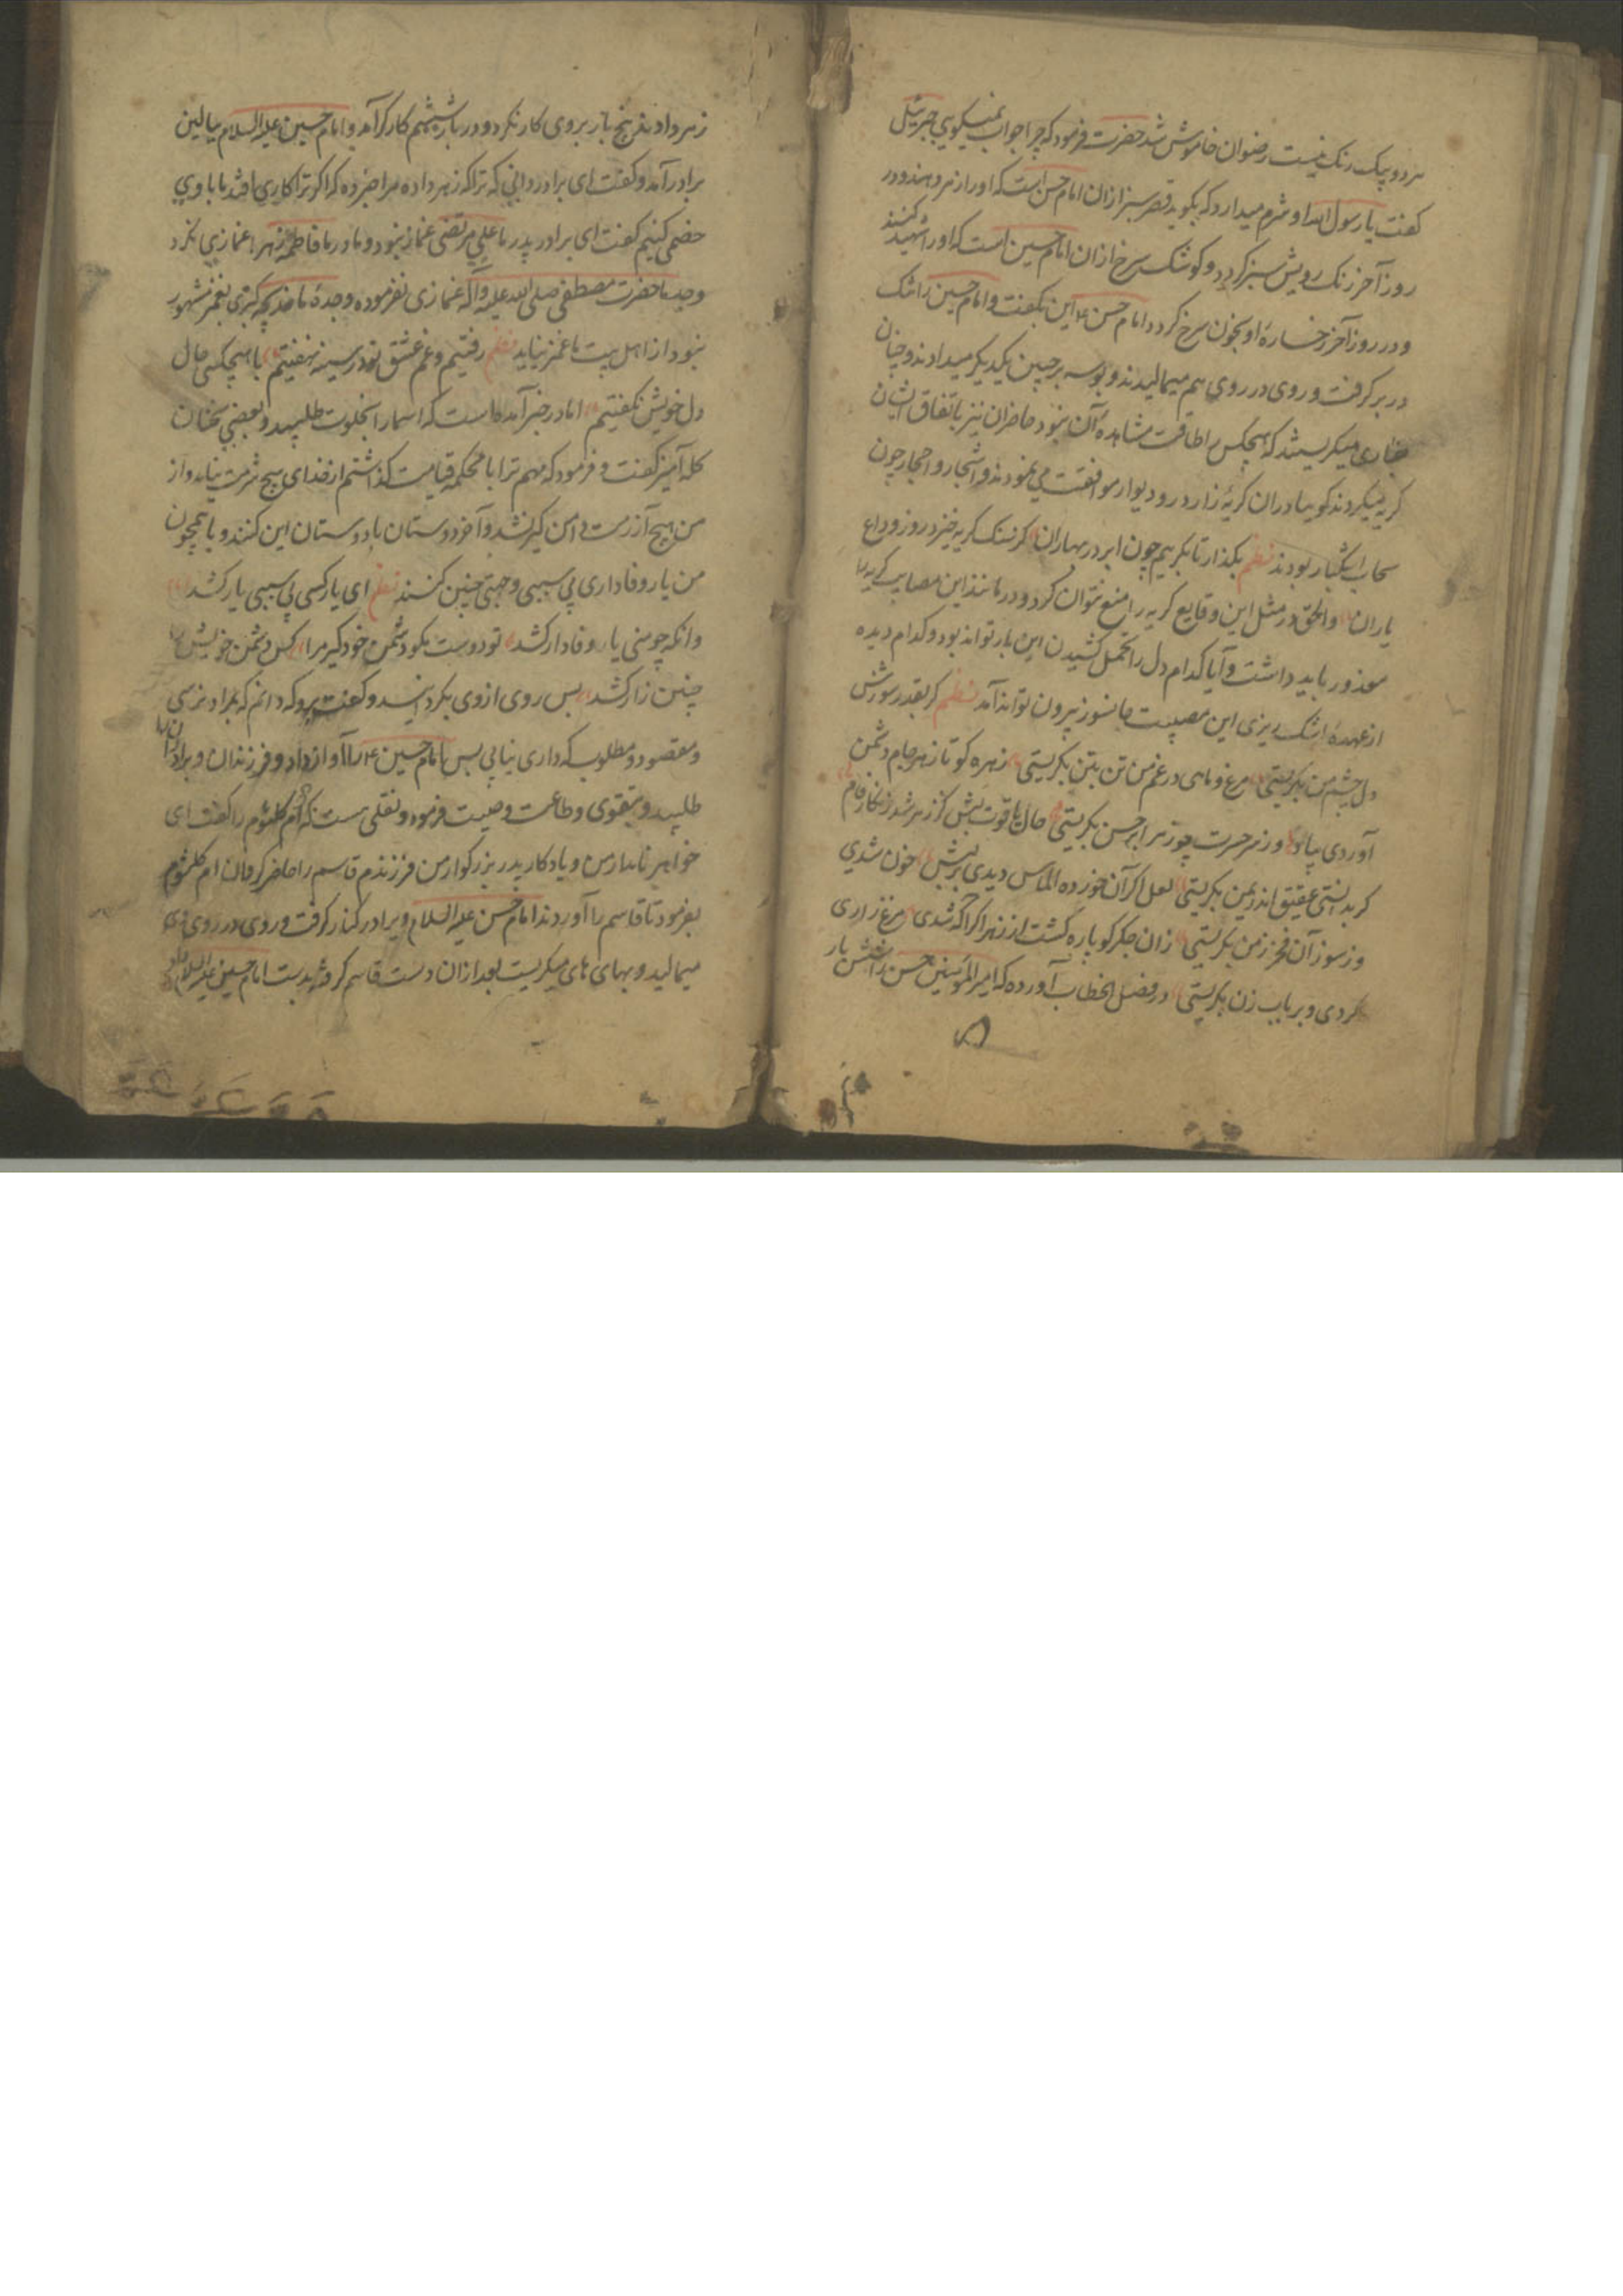 هر دو یک رنگ نیست رضوان خاموش شد حضرت فرمود که چرا جواب نمیگویی جبرئیل
گفت یا رسول الله او شرم میدارد که بگوید قصر سبز از ان امام حسن است که او را زهر دهند و در
روز آخر رنک رویش سبز گردد و کوشک سرخ از ان امام حسین است که او را شهید کنند
و در روز آخر رخساره او بخون سرخ گردد امام حسن ۴ این بگفت و امام حسین را تنک
در بر گرفت و روی در روی هم میمالیدند و بوسه بر جبین یکدیگر میدادند و چنان
میگریستند که هیچکس را طاقت مشاهده آن نبود حاضران نیز باتفاق ایشان
گریه میکردند کویا دران گریه زار در و دیوار موافقت می نمودند و اشجار و احجار چون
سحاب اشکبار بودند نظم بگذار تا بگریم چون ابر در بهاران کز سنگ گریه خیزد روز وداع
یاران والحق در مثل این وقایع گریه را منع نتوان کرد و در مانند این مصایب گریه را
معذور باید داشت و آیا کدام دل را تحمل کشیدن این بار تواند بود و کدام دیده
از عهده اشک ریزی این مصیبت جانسوز بیرون تواند آمد نظم گر بقدر سوزش
دل چشم من بگریستی مرغ و ماهی در غم من تن بتن بگریستی زهره کو تا زهر جام دشمن
آوردی بیاد وز سر حسرت چو زهرا بر حسن بگریستی حال یاقوت لبش کز زهر شد زنگار فام
گر بدانستی عقیق اندر یمن بگریستی لعل اگر آن خورده الماس دیدی بر لبش خون شدی
وز سوز آن بگریستی زان جگر کو پاره گشت از زهر اگر آگه شدی مرغ زاری
کردی و بر بابزن بگریستی در فصل الخطاب آورده که امیر المؤمنین حسن را شش بار
زهر دادند پنج بار بر وی کار نکرد و در بار ششم کارگر آمد و امام حسین علیه السلام ببالین
برادر آمد و گفت ای برادر دانی که ترا که زهر داده مرا خبر ده که اگر ترا کاری افتد با وی
خصمی کنیم گفت ای برادر پدر ما علی مرتضی غماز نبود و مادر ما فاطمه زهرا غمازی نکرد
و جد ما حضرت مصطفی صلی الله علیه و آله غمازی نفرموده و جدهٔ ما خدیجه کبری بغمز مشهور
نبود از اهل بیت ما غمز نیاید نظم رفتیم و غم عشق تو در سینه نهفتیم با هیچکس حال
دل خویش نگفتیم اما در خبر آمده است که اسما را بخلوت طلبید و بعضی سخنان
گله آمیز گفت و فرمود که مهم ترا با محکمه قیامت گذاشتم از خدای هیچ شرمت نیامد و از
من هیچ آزرمت دامن گیر نشد و آخر دوستان با دوستان این کنند و با همچون
من یار وفاداری بی سببی و جهتی چنین کنند نظم ای یار کسی بی سببی یار کشد
وانگه چو منی یار وفادار کشد تو دوست نکو دشمن خود گیر مرا کس دشمن خویش را
چنین زار کشد پس روی از وی بگردانید و گفت برو که دانم که بمراد نرسی
و مقصود و مطلوب که داری نیابی پس امام حسین ۴ را آواز داد و فرزندان و برادران را
طلبید و بتقوی و طاعت وصیت فرمود و نقلی هست که ام کلثوم را گفت ای
خواهر نامدار من و یادگار پدر بزرگوار من فرزندم قاسم را حاضر گردان ام کلثوم
بفرمود تا قاسم را آوردند امام حسن علیه السلام ویرا در کنار گرفت و روی در روی وی
میمالید و بهای های میگریست بعد ازان دست قاسم گرفته بدست امام حسین علیه السلام داد